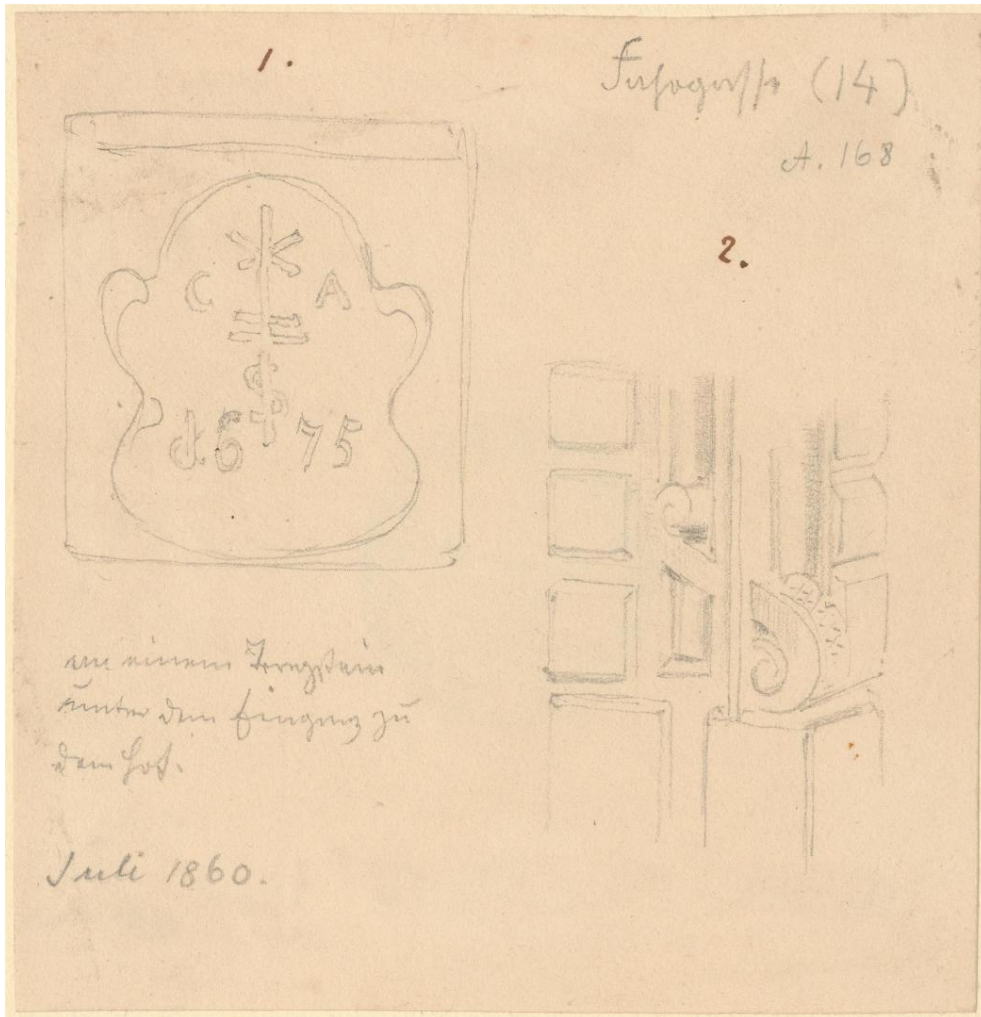 1.
Fahrgasse (14)
A. 168
2.
C A
1675
an einem Tragstein
unter dem Eingang zu
dem Hof.
Juli 1860.